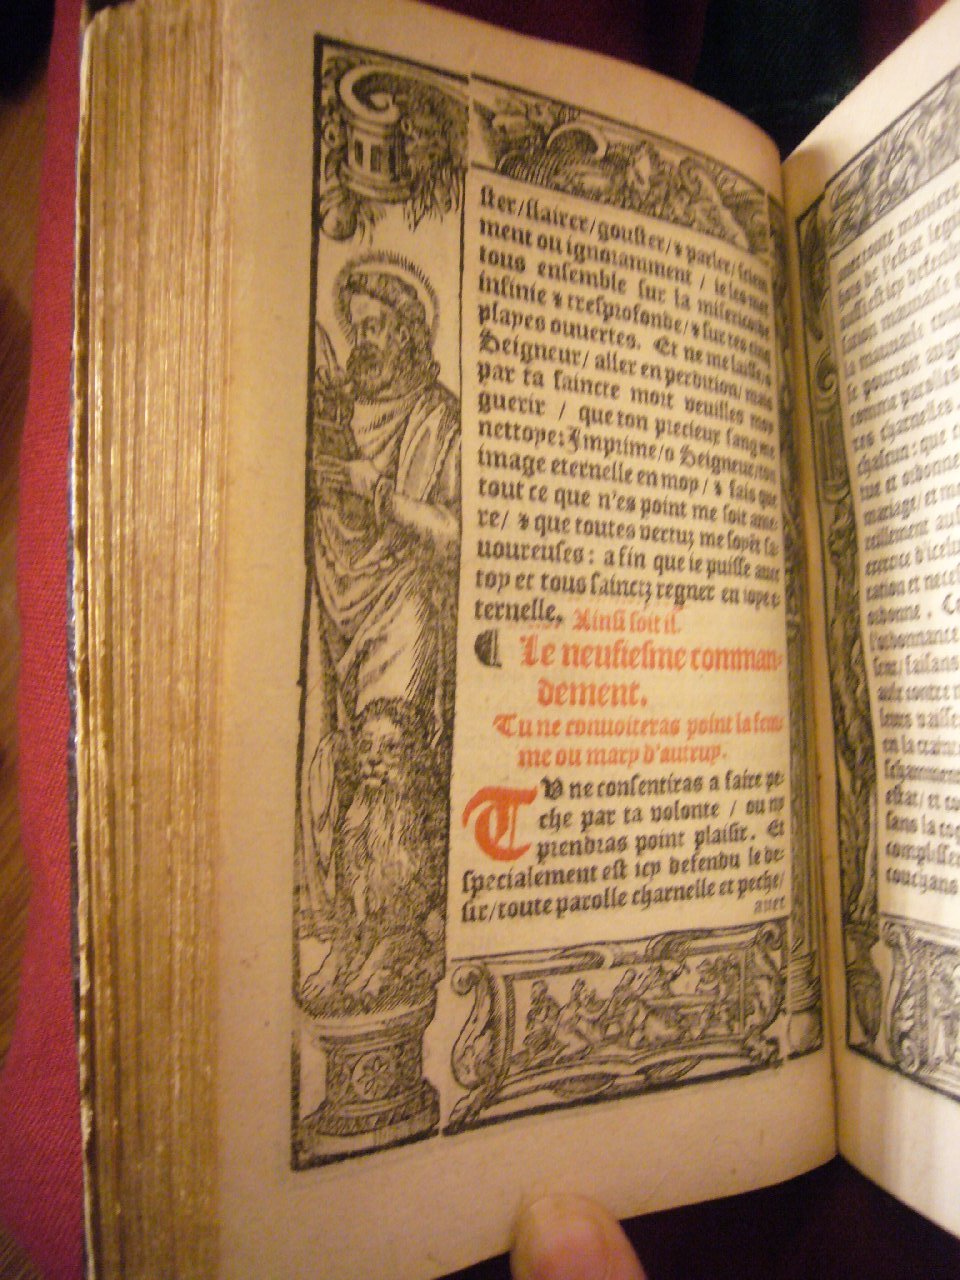 ster/flairer/gouster/⁊ parler/sciem
ment ou ignoramment / ie les met
tous ensemble sur ta misericorde
infinie ⁊ tresprofonde/⁊ sur tes cinq
playes ouuertes. Et ne me laisse/o
Seigneur/ aller en perdition/mais
par ta saincte mort veuilles moy
guerir / que ton precieux sang me
nettoye: Imprime/o Seigneur/ton
image eternelle en moy/ ⁊ fais que
tout ce que n'es point me soit ame
re/ ⁊ que toutes vertuz me soyēt sa-
uoureuses: a fin que ie puisse auec
toy et tous sainctz regner en ioye e-
ternelle. Ainsi soit il.
¶ Le neufiesme comman-
dement.
Tu ne conuoiteras point la fem-
me ou mary d'autruy.
TV ne consentiras a faire pe-
che par ta volonte / ou ny
prendras point plaisir. Et
specialement est icy defendu le de-
sir/toute parolle charnelle et peche/
auec
auec toute maniere
hors de l'estat legi
aussi est icy defendu
la mauuaise
se pourroit
comme parolles
res charnelles.
chascun: que
et ordonne
mariage/ et
exercice d'icelu
cation et neces
ordonne. Ce
l'ordonnance
sent/faisans
aulx contre
leurs vaisse
en la crainte
estat/ et
sans la
complisse
touchans